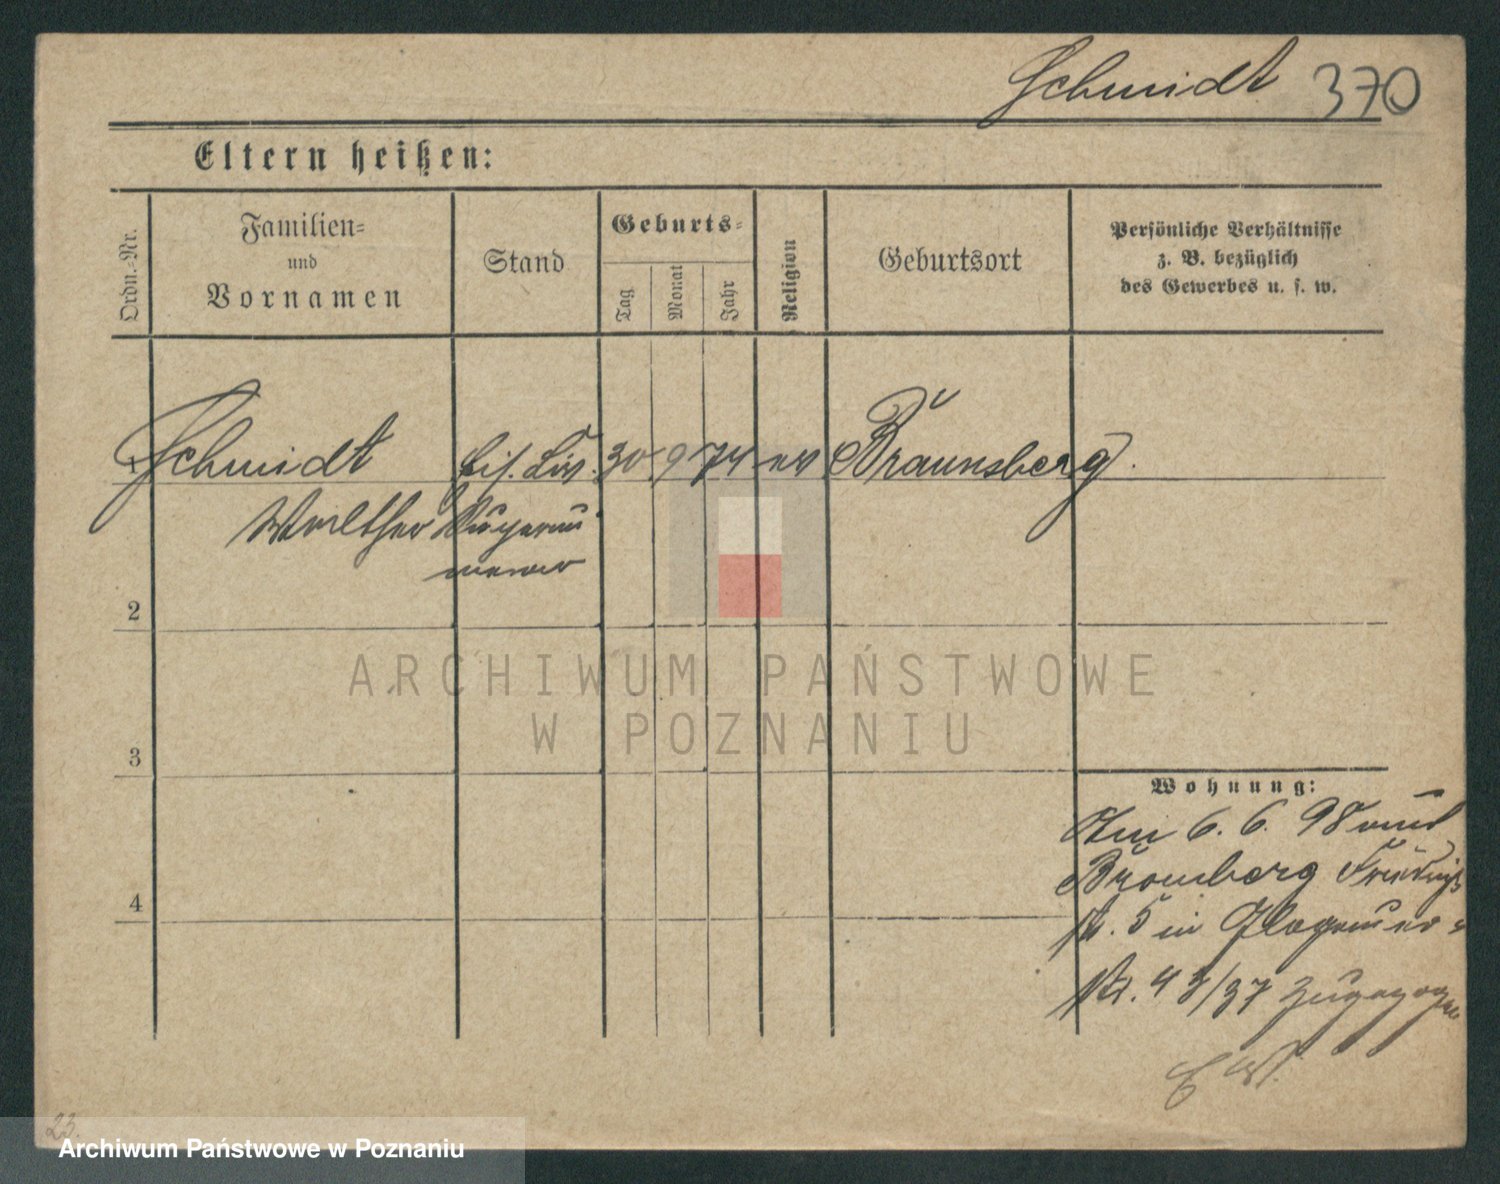 Schmidt 370
Eltern heißen:
Ordn.=Nr.
Familien=
und
Vornamen
Stand
Geburts=
Tag
Monat
Jahr
Religion
Geburtsort
Persönliche Verhältnisse
z. B. bezüglich
des Gewerbes u. s. w.
Schmidt
30 9 74 ev Braunsberg.
Walther
2
3
4
ARCHIWUM PAŃSTWOWE
W POZNANIU
Wohnung:
Am 6. 6. 98 aus
Bromberg
5 in Glogauer=
Str. zugezogen
23.
Archiwum Państwowe w Poznaniu